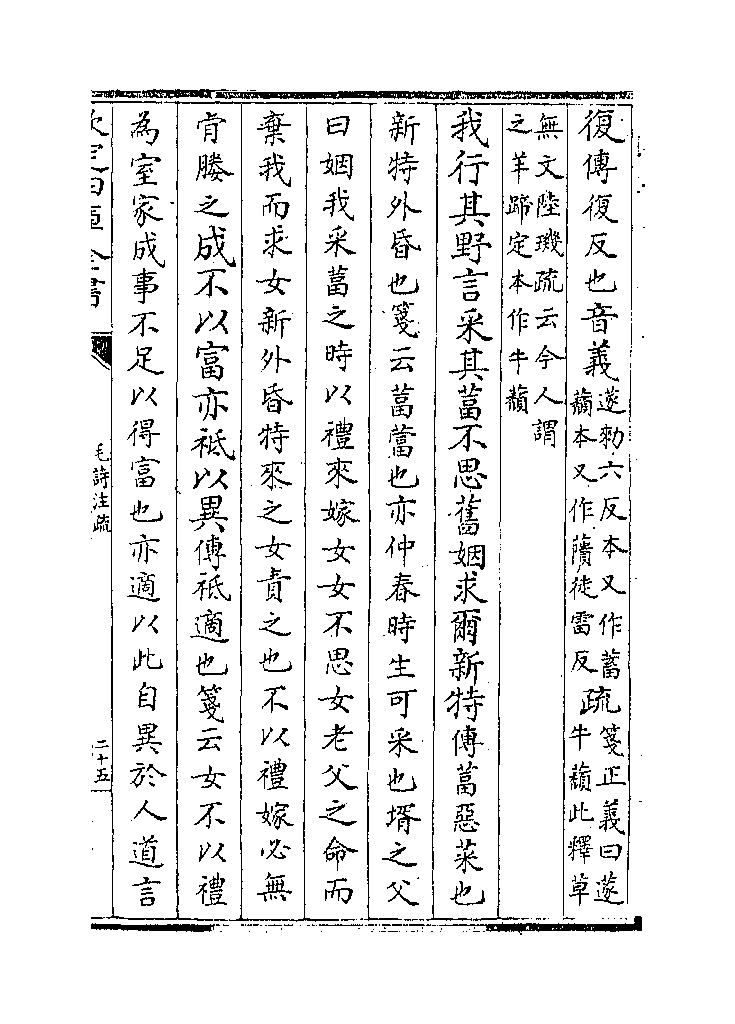 復傳復反也音義
蓫勑六反本又作蓄
蘈本又作藬徒雷反
疏
箋正義曰蓫
牛蘈此釋草
無文陸璣疏云今人謂
之羊蹄定本作牛蘈
我行其野言采其葍不思舊姻求爾新特傳葍惡菜也
新特外昏也箋云葍䔰也亦仲春時生可采也壻之父
曰姻我采葍之時以禮來嫁女女不思女老父之命而
棄我而求女新外昏特來之女責之也不以禮嫁必無
肯媵之成不以富亦祗以異傳祇適也箋云女不以禮
為室家成事不足以得富也亦適以此自異於人道言
欽定四庫全書
毛詩注疏
二十五